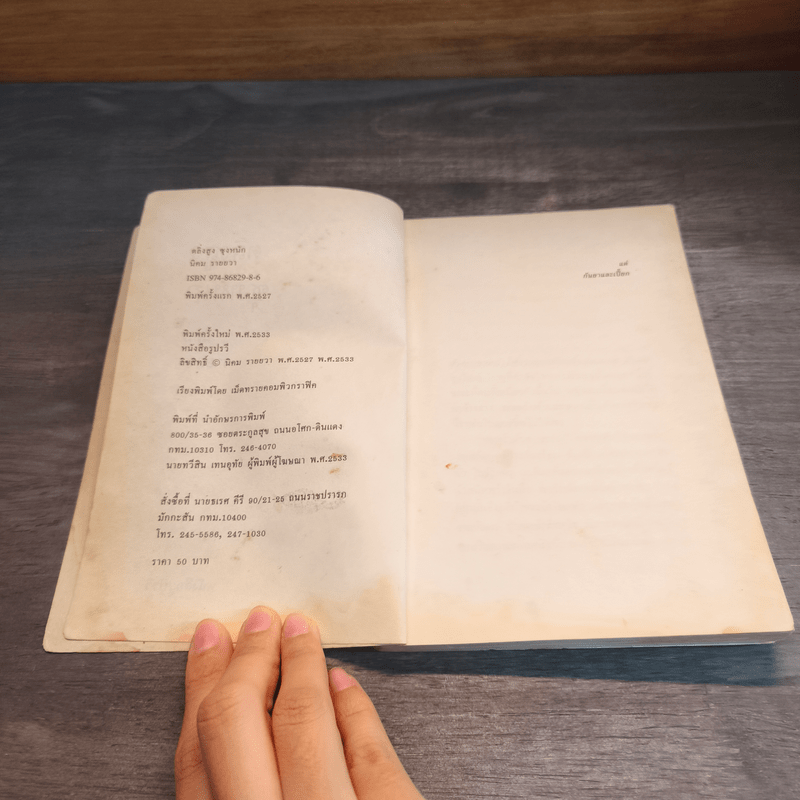 ตลิ่งสูง ซุงหนัก
นิคม รายยวา
ISBN 974-86829-8-6
พิมพ์ครั้งแรก พ.ศ.2527
พิมพ์ครั้งใหม่ พ.ศ.2533
หนังสือรูปรวี
ลิขสิทธิ์ © นิคม รายยวา พ.ศ.2527 พ.ศ.2533
เรียงพิมพ์โดย เม็ดทรายคอมพิวกราฟิค
พิมพ์ที่ นำอักษรการพิมพ์
800/35-36 ซอยตระกูลสุข ถนนอโศก-ดินแดง
กทม.10310 โทร. 246-4070
นายทวีสิน เทนอุทัย ผู้พิมพ์ผู้โฆษณา พ.ศ.2533
สั่งซื้อที่ นายธเรศ คีรี 90/21-25 ถนนราชปรารภ
มักกะสัน กทม.10400
โทร. 245-5586, 247-1030
ราคา 50 บาท
แด่
กันตามและเปี๊ยก